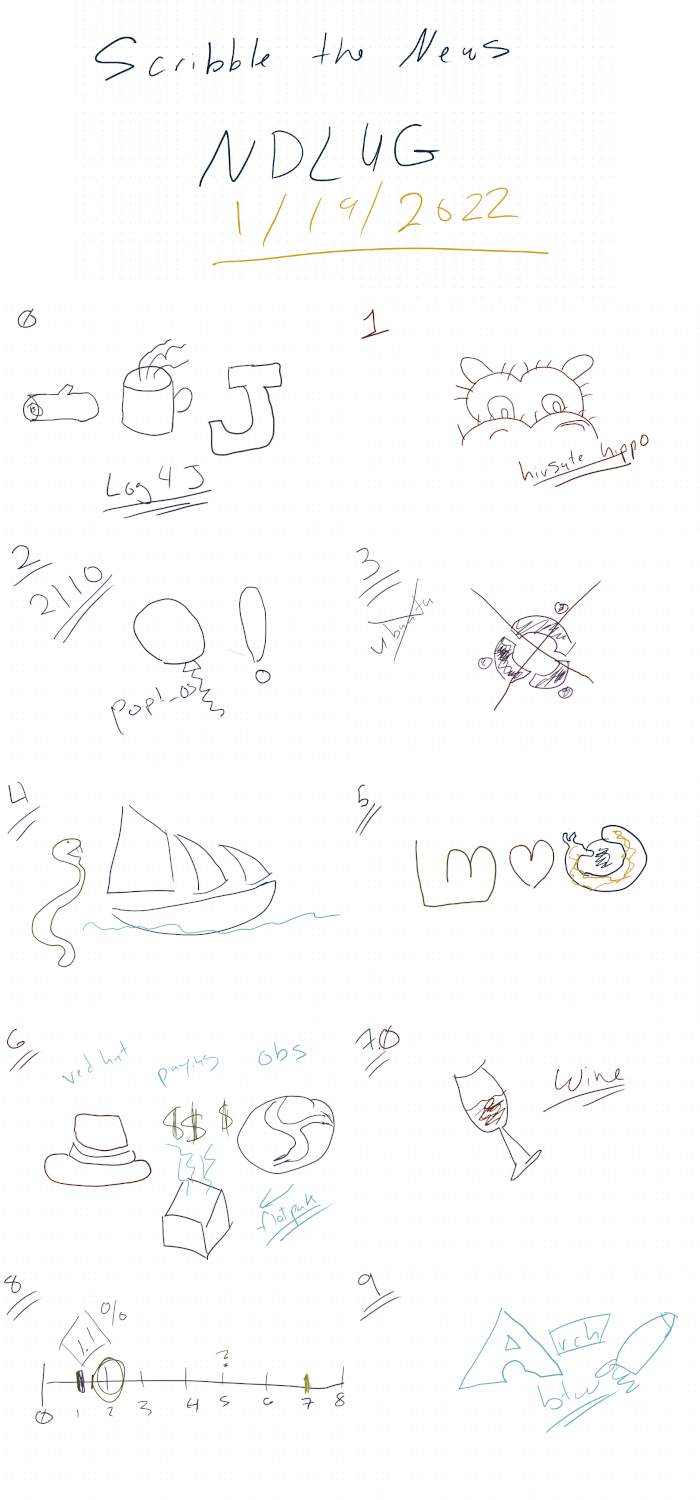 Scribble the News
NDLUG
1/19/2022
0
1
J
Log 4 J
hirsute hippo
2
21.10
!
Pop!_os
3
ubuntu
4
5
m
6
red hat
paying
obs
$$ $
flatpak
7.0
wine
8
1.1 %
?
0 1 2 3 4 5 6 7 8
9
Arch
btw